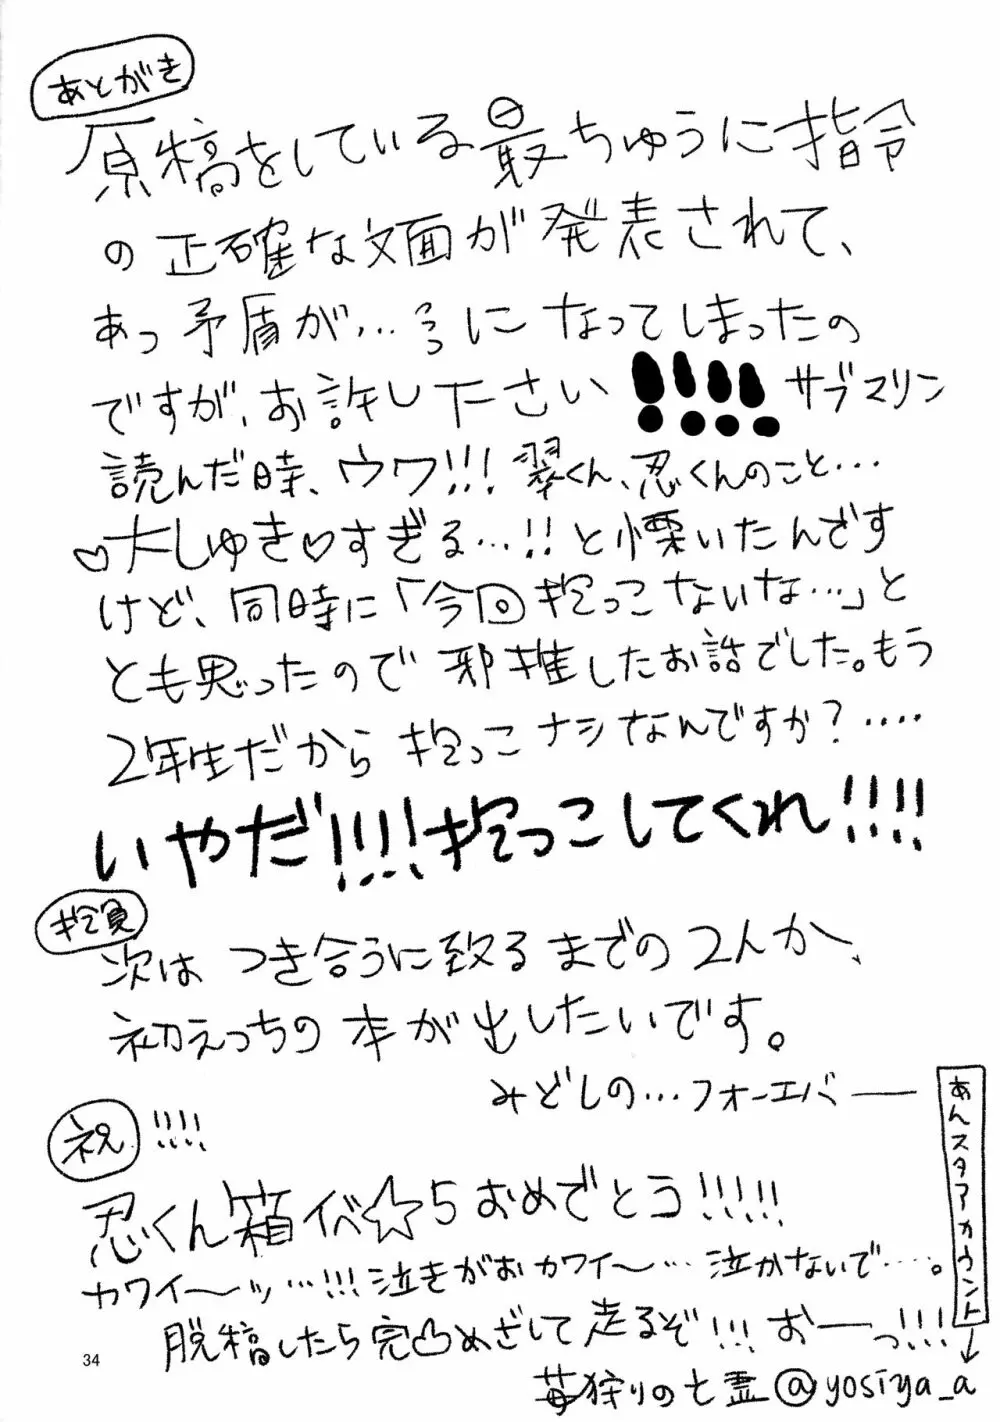 あとがき
原稿をしている最ちゅうに指令
の正確な文面が発表されて、
あっ矛盾が…っっになってしまったの
ですが、お許し下さい!!!!サブマリン
読んだ時、ウワ!!!翠くん、忍くんのこと…
♡大しゅき♡すぎる…!!と慄いたんです
けど、同時に「今回抱っこないな…」と
とも思ったので邪推したお話でした。もう
2年生だから抱っこナシなんですか?‥‥
いやだ!!!!抱っこしてくれ!!!!
次は つき合うに致るまでの2人か、
初えっちの本が出したいです。
みどしの…フォーエバー
祝!!!!
忍くん箱イベ☆5おめでとう!!!!!
カワイ〜ッ…!!!泣きがおカワイ〜…泣かないで……。
脱稿したら完凸めざして走るぞ!!!おーっ!!!!
あんスタアカウント↓
苺狩りの七霊@yosiya_a
34